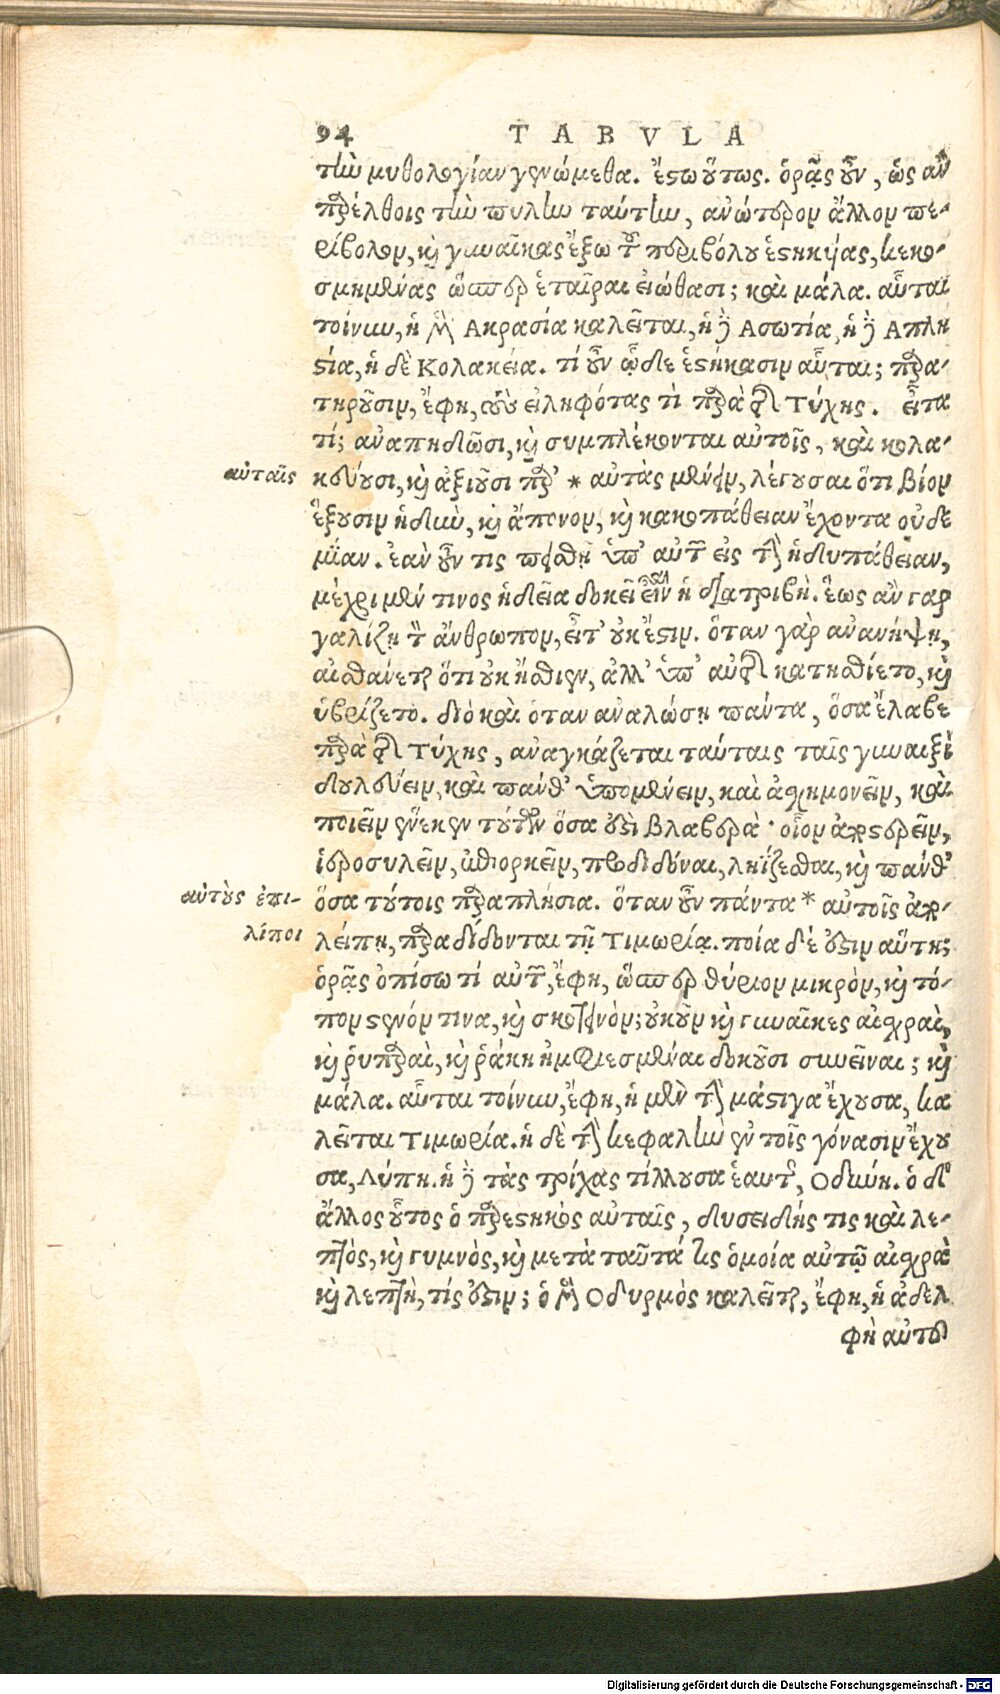 94 TABVLA
τὴν μυθολογίαν γενώμεθα. ἔστω οὕτως. ὁρᾷς οὖν, ὡς ἂν
παρέλθοις τὴν πύλην ταύτην, ἀνώτερον ἄλλον πε-
ρίβολον, καὶ γυναῖκας ἔξω τοῦ περιβόλου ἑστηκυίας, κεκο-
σμημένας ὥσπερ ἑταῖραι εἰώθασι; καὶ μάλα. αὗται
τοίνυν, ἡ μὲν Ακρασία καλεῖται, ἡ δὲ Ασωτία, ἡ δὲ Απλη
στία, ἡ δὲ Κολακεία. τί οὖν ὧδε ἑστήκασιν αὗται; παρα-
τηροῦσιν, ἔφη, τοὺς εἰληφότας τὶ παρὰ τῆς Τύχης. εἶτα
τί; ἀναπηδῶσι, καὶ συμπλέκονται αὐτοῖς, καὶ κολα-
αὐταῖς
κεύουσι, καὶ ἀξιοῦσι παρ' * αὐτὰς μένειν, λέγουσαι ὅτι βίον
ἕξουσιν ἡδὺν, καὶ ἄπονον, καὶ κακοπάθειαν ἔχοντα οὐδε
μίαν. ἐὰν οὖν τις πεισθῇ ὑπ' αὐτῶν εἰς τὴν ἡδυπάθειαν,
μέχρι μέν τινος ἡδεῖα δοκεῖ εἶναι ἡ διατριβὴ. ἕως ἂν γαρ
γαλίζῃ τὸν ἄνθρωπον, εἶτ' οὐκ ἔστιν. ὅταν γὰρ ἀνανήψῃ,
αἰσθάνεται ὅτι οὐκ ἤσθιεν, ἀλλ' ὑπ' αὐτῆς κατησθίετο, καὶ
ὑβρίζετο. διὸ καὶ ὅταν ἀναλώσῃ πάντα, ὅσα ἔλαβε
παρὰ τῆς Τύχης, ἀναγκάζεται ταύταις ταῖς γυναιξὶ
δουλεύειν, καὶ πάνθ' ὑπομένειν, καὶ ἀσχημονεῖν, καὶ
ποιεῖν ἕνεκεν τούτων ὅσα ἐστὶ βλαβερὰ· οἷον ἀποστερεῖν,
ἱεροσυλεῖν, ἐπιορκεῖν, προδιδόναι, ληΐζεσθαι, καὶ πάνθ'
αὐτοὺς ἐπι-
λίποι
ὅσα τούτοις παραπλήσια. ὅταν οὖν πάντα * αὐτοῖς ἀπο-
λείπῃ, παραδίδονται τῇ Τιμωρίᾳ. ποία δέ ἐστιν αὕτη;
ὁρᾷς ὀπίσω τί αὐτῶν, ἔφη, ὥσπερ θύριον μικρὸν, καὶ τό-
πον στενόν τινα, καὶ σκοτεινόν; οὐκοῦν καὶ γυναῖκες αἰσχραὶ,
καὶ ῥυπαραὶ, καὶ ῥάκη ἠμφιεσμέναι δοκοῦσι συνεῖναι; καὶ
μάλα. αὗται τοίνυν, ἔφη, ἡ μὲν τὴν μάστιγα ἔχουσα, κα
λεῖται Τιμωρία. ἡ δὲ τὴν κεφαλὴν ἐν τοῖς γόνασιν ἔχου
σα, Λύπη. ἡ δὲ τὰς τρίχας τίλλουσα ἑαυτῆς, Οδύνη. ὁ δ'
ἄλλος οὗτος ὁ παρεστηκὼς αὐταῖς, δυσειδής τις καὶ λε-
πτὸς, καὶ γυμνὸς, καὶ μετὰ ταῦτά τις ὁμοία αὐτῷ αἰσχρὰ
καὶ λεπτὴ, τίς ἐστιν; ὁ μὲν Οδυρμὸς καλεῖται, ἔφη, ἡ ἀδελ
φὴ αὐτοῦ
Digitalisierung gefördert durch die Deutsche Forschungsgemeinschaft - DFG